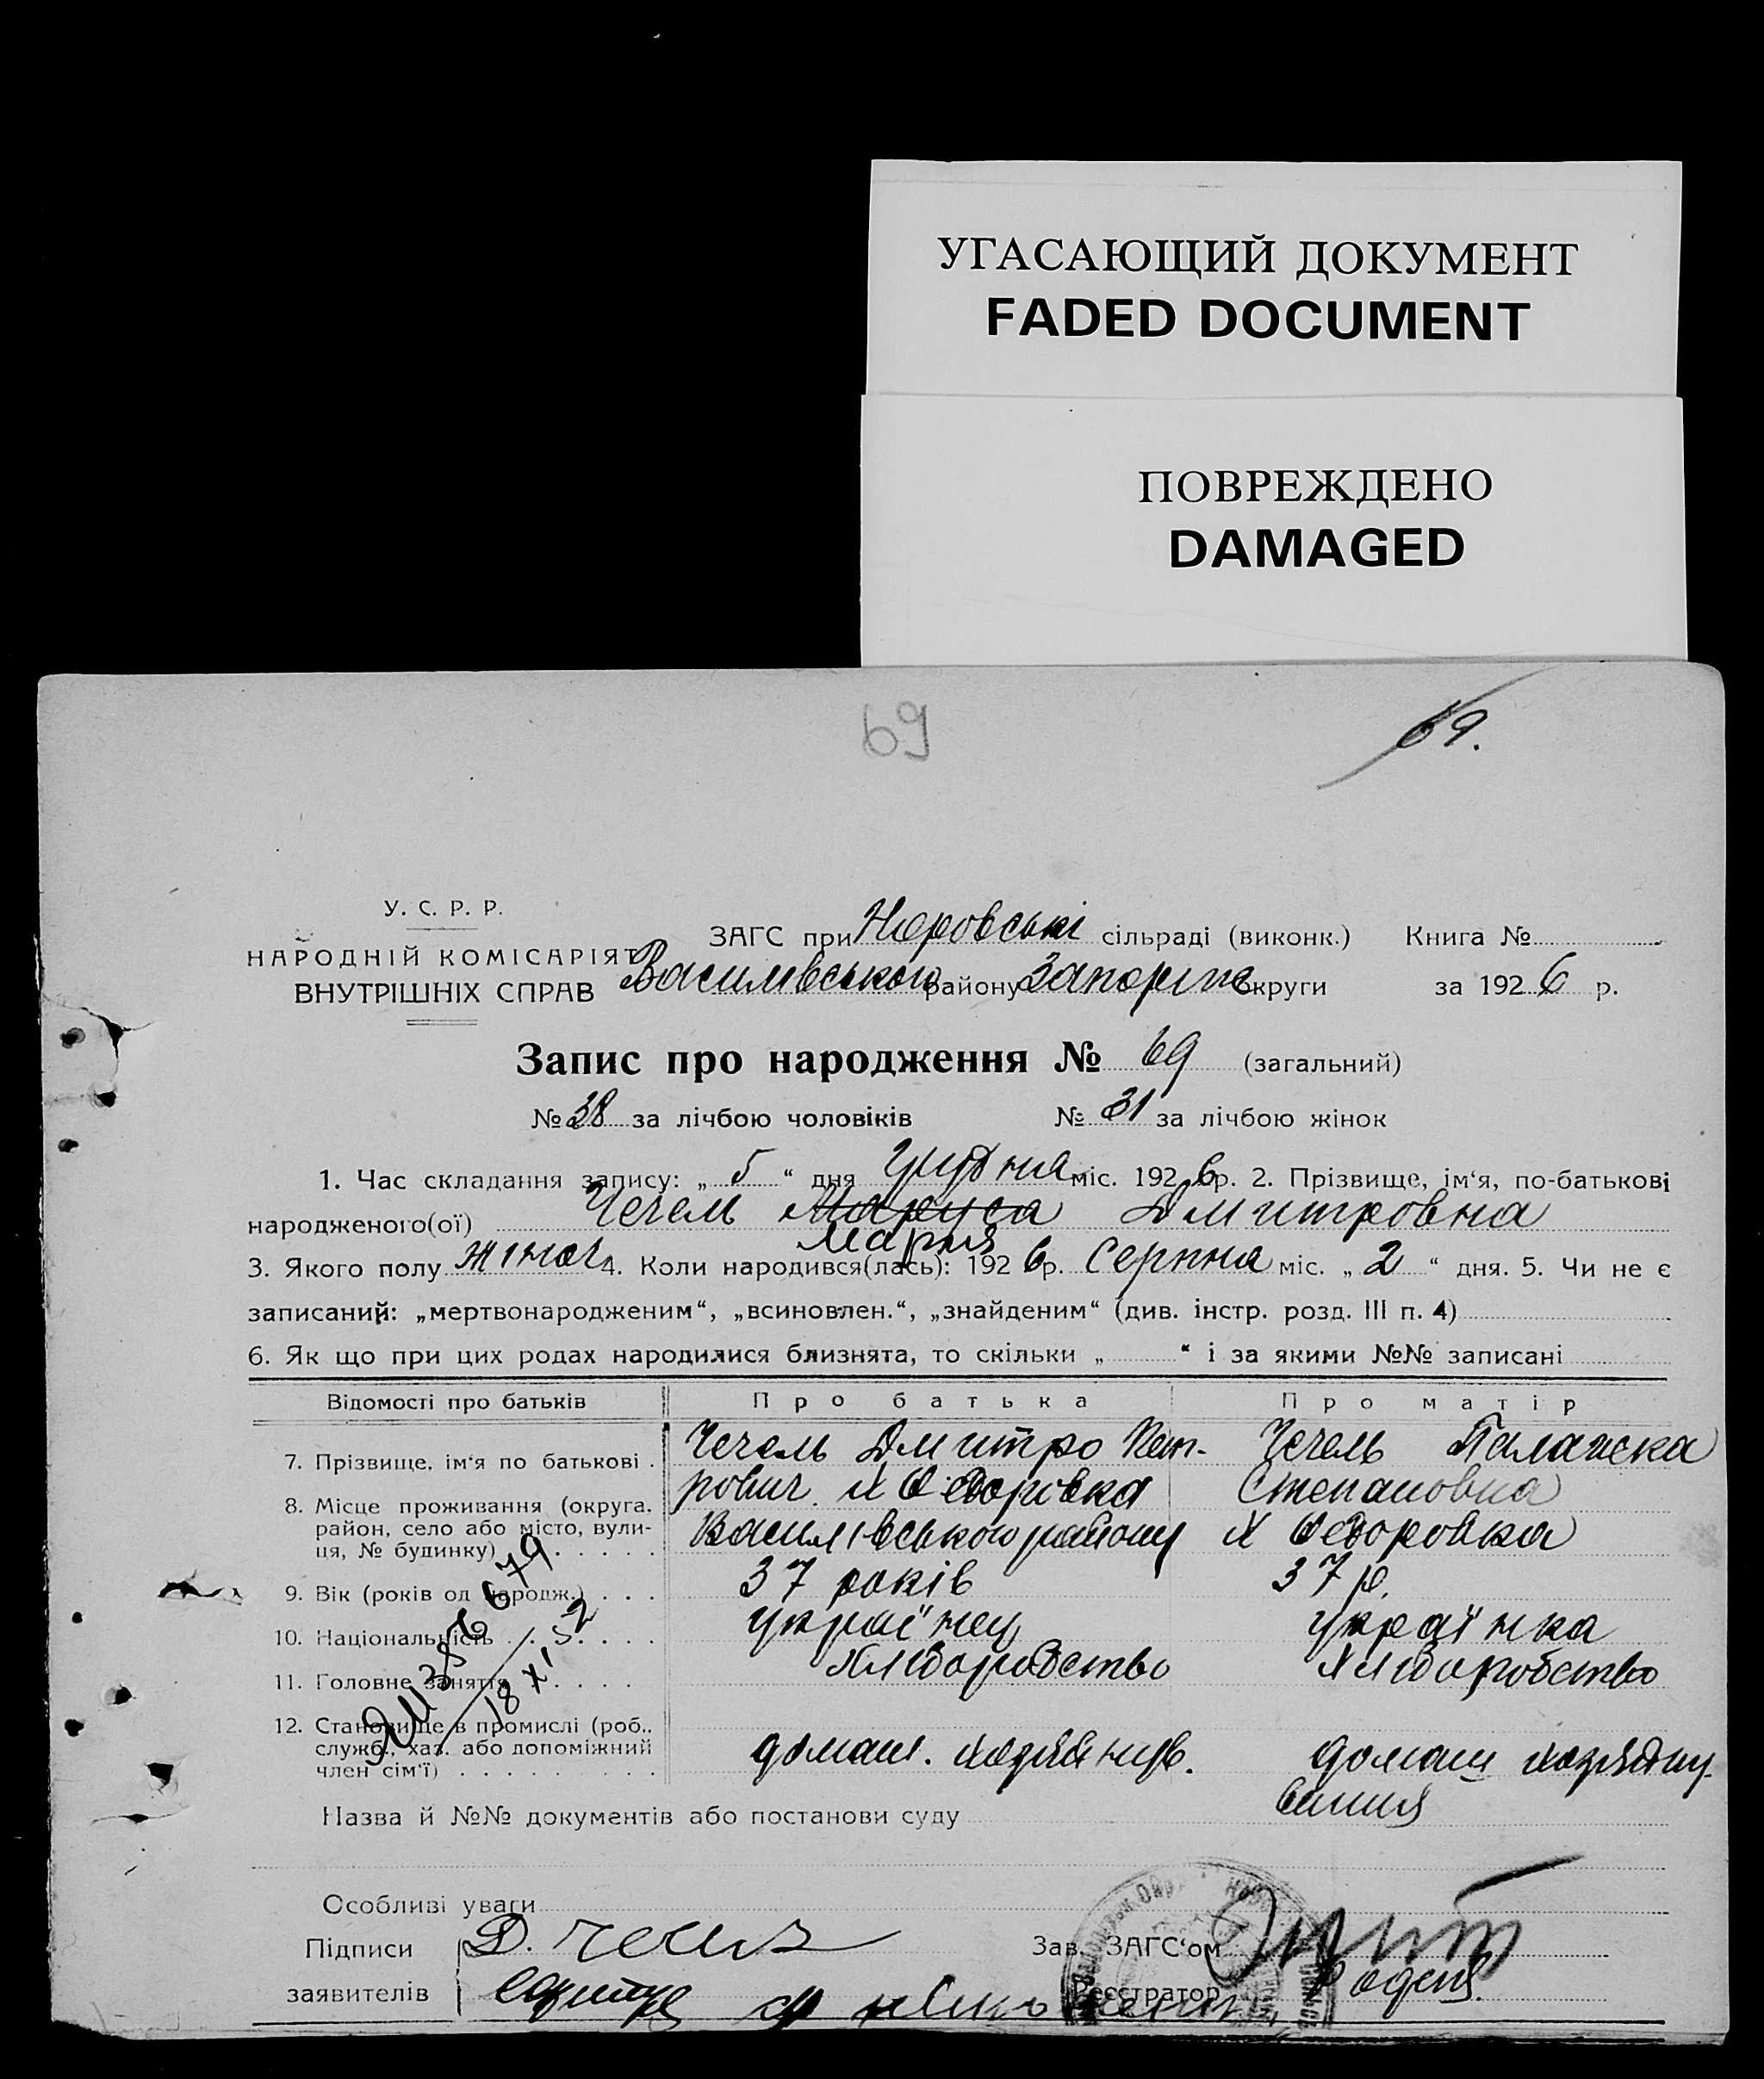 УГАСАЮЩИЙ ДОКУМЕНТ
FADED DOCUMENT
ПОВРЕЖДЕНО
DAMAGED
69
69.
У. С. Р. Р.
НАРОДНІЙ КОМІСАРІЯТ
ВНУТРІШНІХ СПРАВ
ЗАГС при сільраді (виконк.) Книга №
Василівського району Запоріж округи за 1926 р.
Запис про народження № 69 (загальний)
№ 38 за лічбою чоловіків № 31 за лічбою жінок
1. Час складання запису: „ 5 “ дня міс. 1926 р. 2. Прізвище, ім‘я, по-батькові
народженого(ої) Чечель Маруся Дмитровна
Мария
3. Якого полу жіноч 4. Коли народився(лась): 1926 р. Серпня міс. „ 2 “ дня. 5. Чи не є
записаний: „мертвонародженим“, „всиновлен.“, „знайденим“ (див. інстр. розд. III п. 4)
6. Як що при цих родах народилися близнята, то скільки „ “ і за якими №№ записані
Відомості про батьків Про батька Про матір
7. Прізвище, ім‘я по батькові . Чечель Дмитро Пет- Чечель Палажка
рович. Х Федорівка Степановна
8. Місце проживання (округа,
район, село або місто, вули-
ця, № будинку) Василівського району Х Федоровка
9. Вік (років од народж.) 37 років 37 р.
10. Національність українец українка
11. Головне заняття Хліборобство Хліборобство
12. Становище в промислі (роб.,
служб., хаз. або допоміжний
член сім‘ї) домаш. домаш
вання
18 XI 52
Назва й №№ документів або постанови суду
Особливі уваги
Підписи Д. Зав. ЗАГС‘ом
заявителів Реєстратор